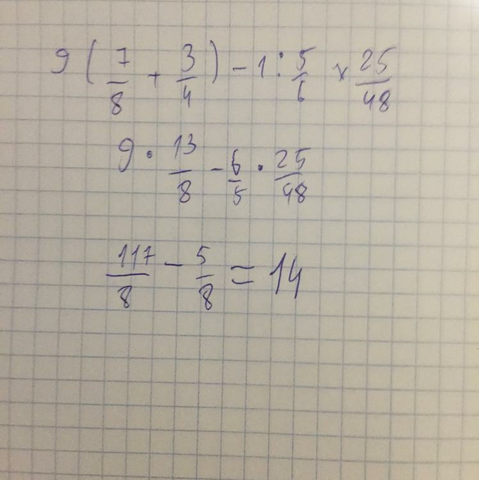 9 ( 7/8 + 3/4 ) - 1 : 5/6 × 25/48
9 · 13/8 - 6/5 · 25/48
117/8 - 5/8 = 14